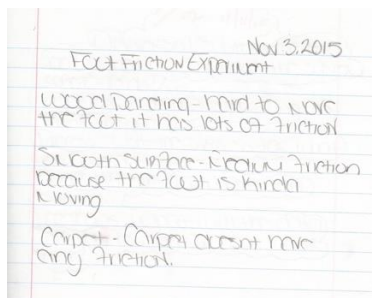 Nov 3, 2015
Foot Friction Experiment
Wood Paneling - hard to move
the foot it has lots of friction
Smooth Surface - Medium friction
because the foot is kinda
moving
Carpet - Carpet doesnt have
any friction.